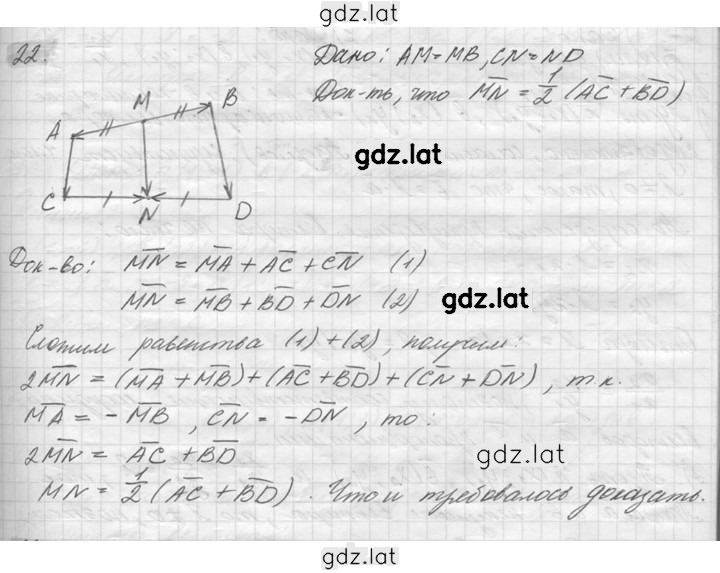 gdz.lat
22.
Дано: AM=MB, CN=ND
Док-ть, что M̅N̅ = 1/2 (A̅C̅ + B̅D̅)
M
B
A
gdz.lat
C
N
D
Док-во: M̅N̅ = M̅A̅ + A̅C̅ + C̅N̅ (1)
M̅N̅ = M̅B̅ + B̅D̅ + D̅N̅ (2)
gdz.lat
Сложим равенства (1)+(2), получим:
2M̅N̅ = (M̅A̅ + M̅B̅) + (A̅C̅ + B̅D̅) + (C̅N̅ + D̅N̅), т.к.
M̅A̅ = - M̅B̅, C̅N̅ = - D̅N̅, то:
2M̅N̅ = A̅C̅ + B̅D̅
MN = 1/2 (A̅C̅ + B̅D̅). Что и требовалось доказать.
gdz.lat
gdz.lat